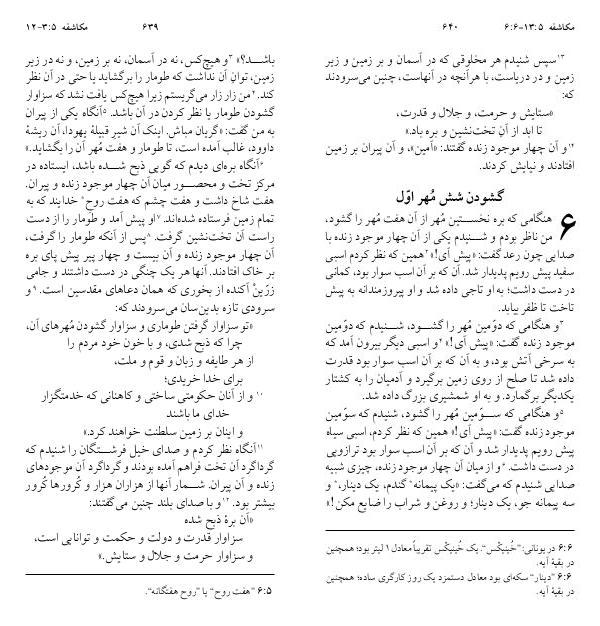 مکاشفه ۳:۵-۱۲
۶۳۹
باشد؟» ۳و هیچ‌کس، نه در آسمان، نه بر زمین، و نه در زیر
زمین، توان آن نداشت که طومار را برگشاید یا حتی در آن نظر
کند. ۴من زار زار می‌گریستم زیرا هیچ‌کس یافت نشد که سزاوار
گشودن طومار یا نظر کردن در آن باشد. ۵آنگاه یکی از پیران
به من گفت: «گریان مباش. اینک آن شیر قبیلهٔ یهودا، آن ریشهٔ
داوود، غالب آمده است، تا طومار و هفت مُهر آن را بگشاید.»
۶آنگاه بره‌ای دیدم که گویی ذبح شده باشد، ایستاده در
مرکز تخت و محصور میان آن چهار موجود زنده و پیران.
هفت شاخ داشت و هفت چشم که هفت روحِ* خدایند که به
تمام زمین فرستاده شده‌اند. ۷او پیش آمد و طومار را از دست
راست آن تخت‌نشین گرفت. ۸پس از آنکه طومار را گرفت،
آن چهار موجود زنده و آن بیست و چهار پیر پیش پای بره
بر خاک افتادند. آنها هر یک چنگی در دست داشتند و جامی
زرّین آکنده از بخوری که همان دعاهای مقدسین است. ۹و
سرودی تازه بدین‌سان می‌سرودند که:
«تو سزاوار گرفتن طوماری و سزاوار گشودن مُهرهای آن،
چرا که ذبح شدی، و با خون خود مردم را
از هر طایفه و زبان و قوم و ملت،
برای خدا خریدی؛
۱۰و از آنان حکومتی ساختی و کاهنانی که خدمتگزار
خدای ما باشند
و اینان بر زمین سلطنت خواهند کرد.»
۱۱آنگاه نظر کردم و صدای خیل فرشتگان را شنیدم که
گرداگرد آن تخت فراهم آمده بودند و گرداگرد آن موجودهای
زنده و آن پیران. شمار آنها از هزاران هزار و کُرورها کُرور
بیشتر بود. ۱۲و با صدای بلند چنین می‌گفتند:
«آن برهٔ ذبح شده
سزاوار قدرت و دولت و حکمت و توانایی است،
و سزاوار حرمت و جلال و ستایش.»
۶:۵ "هفت روح" یا "روح هفتگانه".
۶۴۰
مکاشفه ۱۳:۵-۶:۶
۱۳سپس شنیدم هر مخلوقی که در آسمان و بر زمین و زیر
زمین و در دریاست، با هرآنچه در آنهاست، چنین می‌سرودند
که:
«ستایش و حرمت، و جلال و قدرت،
تا ابد از آنِ تخت‌نشین و بره باد.»
۱۴و آن چهار موجود زنده گفتند: «آمین»، و آن پیران بر زمین
افتادند و نیایش کردند.
گشودن شش مُهر اوّل
۶ هنگامی که بره نخستین مُهر از آن هفت مُهر را گشود،
من ناظر بودم و شنیدم یکی از آن چهار موجود زنده با
صدایی چون رعد گفت: «پیش آی!» ۲همین که نظر کردم اسبی
سفید پیش رویم پدیدار شد. آن که بر آن اسب سوار بود، کمانی
در دست داشت؛ به او تاجی داده شد و او پیروزمندانه به پیش
تاخت تا ظفر بیابد.
۳و هنگامی که دوّمین مُهر را گشود، شنیدم که دوّمین
موجود زنده گفت: «پیش آی!» ۴و اسبی دیگر بیرون آمد که
به سرخی آتش بود، و به آن که بر آن اسب سوار بود قدرت
داده شد تا صلح از روی زمین برگیرد و آدمیان را به کشتار
یکدیگر برگمارد. و به او شمشیری بزرگ داده شد.
۵و هنگامی که سوّمین مُهر را گشود، شنیدم که سوّمین
موجود زنده گفت: «پیش آی!» همین که نظر کردم، اسبی سیاه
پیش رویم پدیدار شد و آن که بر آن اسب سوار بود ترازویی
در دست داشت. ۶و از میان آن چهار موجود زنده، چیزی شبیه
صدایی شنیدم که می‌گفت: «یک پیمانه* گندم، یک دینار،* و
سه پیمانه جو، یک دینار؛ و روغن و شراب را ضایع مکن!»
۶:۶ در یونانی: "خُینیکْس". یک خُینیکْس تقریباً معادل ۱ لیتر بود؛ همچنین
در بقیهٔ آیه.
۶:۶ "دینار" سکه‌ای بود معادل دستمزد یک روز کارگری ساده؛ همچنین
در بقیهٔ آیه.